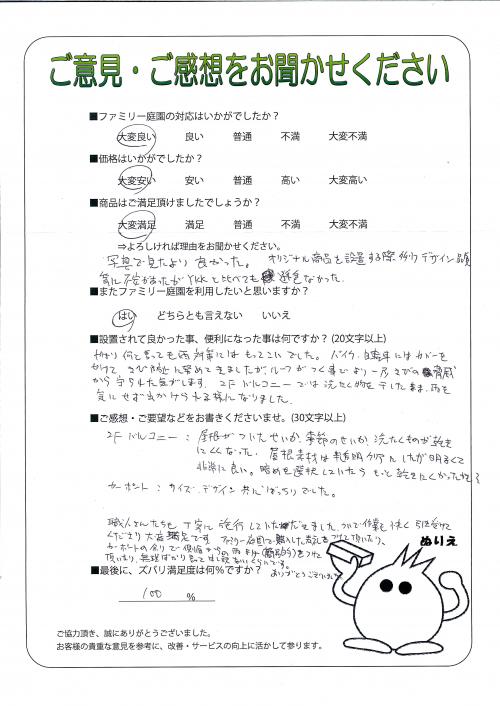 ご意見・ご感想をお聞かせください
■ファミリー庭園の対応はいかがでしたか？
大変良い 良い 普通 不満 大変不満
■価格はいかがでしたか？
大変安い 安い 普通 高い 大変高い
■商品はご満足頂けましたでしょうか？
大変満足 満足 普通 不満 大変不満
⇒よろしければ理由をお聞かせください。
写真で見たより良かった。オリジナル商品を設置する際
気に YKKと比べても 遜色なかった。
■またファミリー庭園を利用したいと思いますか？
はい どちらとも言えない いいえ
■設置されて良かった事、便利になった事は何ですか？(20文字以上)
やはり何と言っても雨対策にはもってこいでした。バイク、自転車にはカバーを
かけて さび防止に努めてきましたが、ルーフがつく事でより一層さびの脅威
から守られた気がします。2Fバルコニーでは洗たく物を干したまま、雨を
気にせず出かけられる様になりました。
■ご感想・ご要望などをお書きくださいませ。(30文字以上)
2Fバルコニー：屋根がついたせいか、季節のせいか、洗たくものが乾き
にくくなった。屋根素材は にしたが明るくて
非常に良い。暗めを選択していたらもっと乾きにくかったかも
カーポート：サイズ、デザイン共にばっちりでした。
職人さんたちも丁寧に施行していただきました。ついで作業も快く引き受けて
くださり大変満足です。ファミリー庭園で購入した を つけて頂いたり、
カーポートの余りで をつけて
頂いたり、無理ばかり言って くらいです。
ありがとうございました
■最後に、ズバリ満足度は何％ですか？
100 ％
ぬりえ
ご協力頂き、誠にありがとうございました。
お客様の貴重な意見を参考に、改善・サービスの向上に活かして参ります。